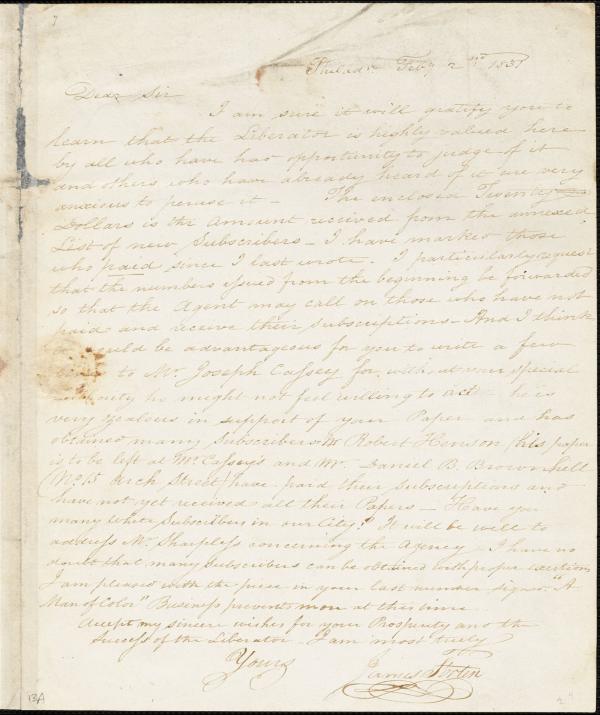 Philad.a Feby 2nd 1831
Dear Sir
I am sure it will gratify you to
hearn that the Liberator is highly valued here
by all who have has opportunity to judge of it
and others who have already heard of it are very
anxious to peruse it — The enclosed Twenty
Dollars is the Amount received from the annexed
List of new Subscribers — I have marked those
who paid since I last wrote. I particularly request
that the numbers issued from the beginning be forwarded
so that the Agent may call on those who have not
paid and receive their subscriptions — And I think
would be advantageous for you to write a few
to Mr. Joseph Cassey for without your special
he might not feel willing to act — he is
very zealous in support of your Paper and has
obtained many Subscribers Mr Robert Henson (his paper
is to be left at Mr Cassey's and Mr. Daniel B. Brownhell
(No 15 Arch Street) have paid their subscriptions and
have not yet received all their Papers — Have you
many White Subscribers in our City? It will be well to
address Mr. Sharpless concerning the Agency I have no
doubt that many Subscribers can be obtained with proper exertions
I am pleased with the piece in your last number signed "A
Man of Color" Business prevents more at this time
Accept my sincere wishes for your Prosperity and the
Success of the Liberator. I am most truly
Yours
James Forten
13A